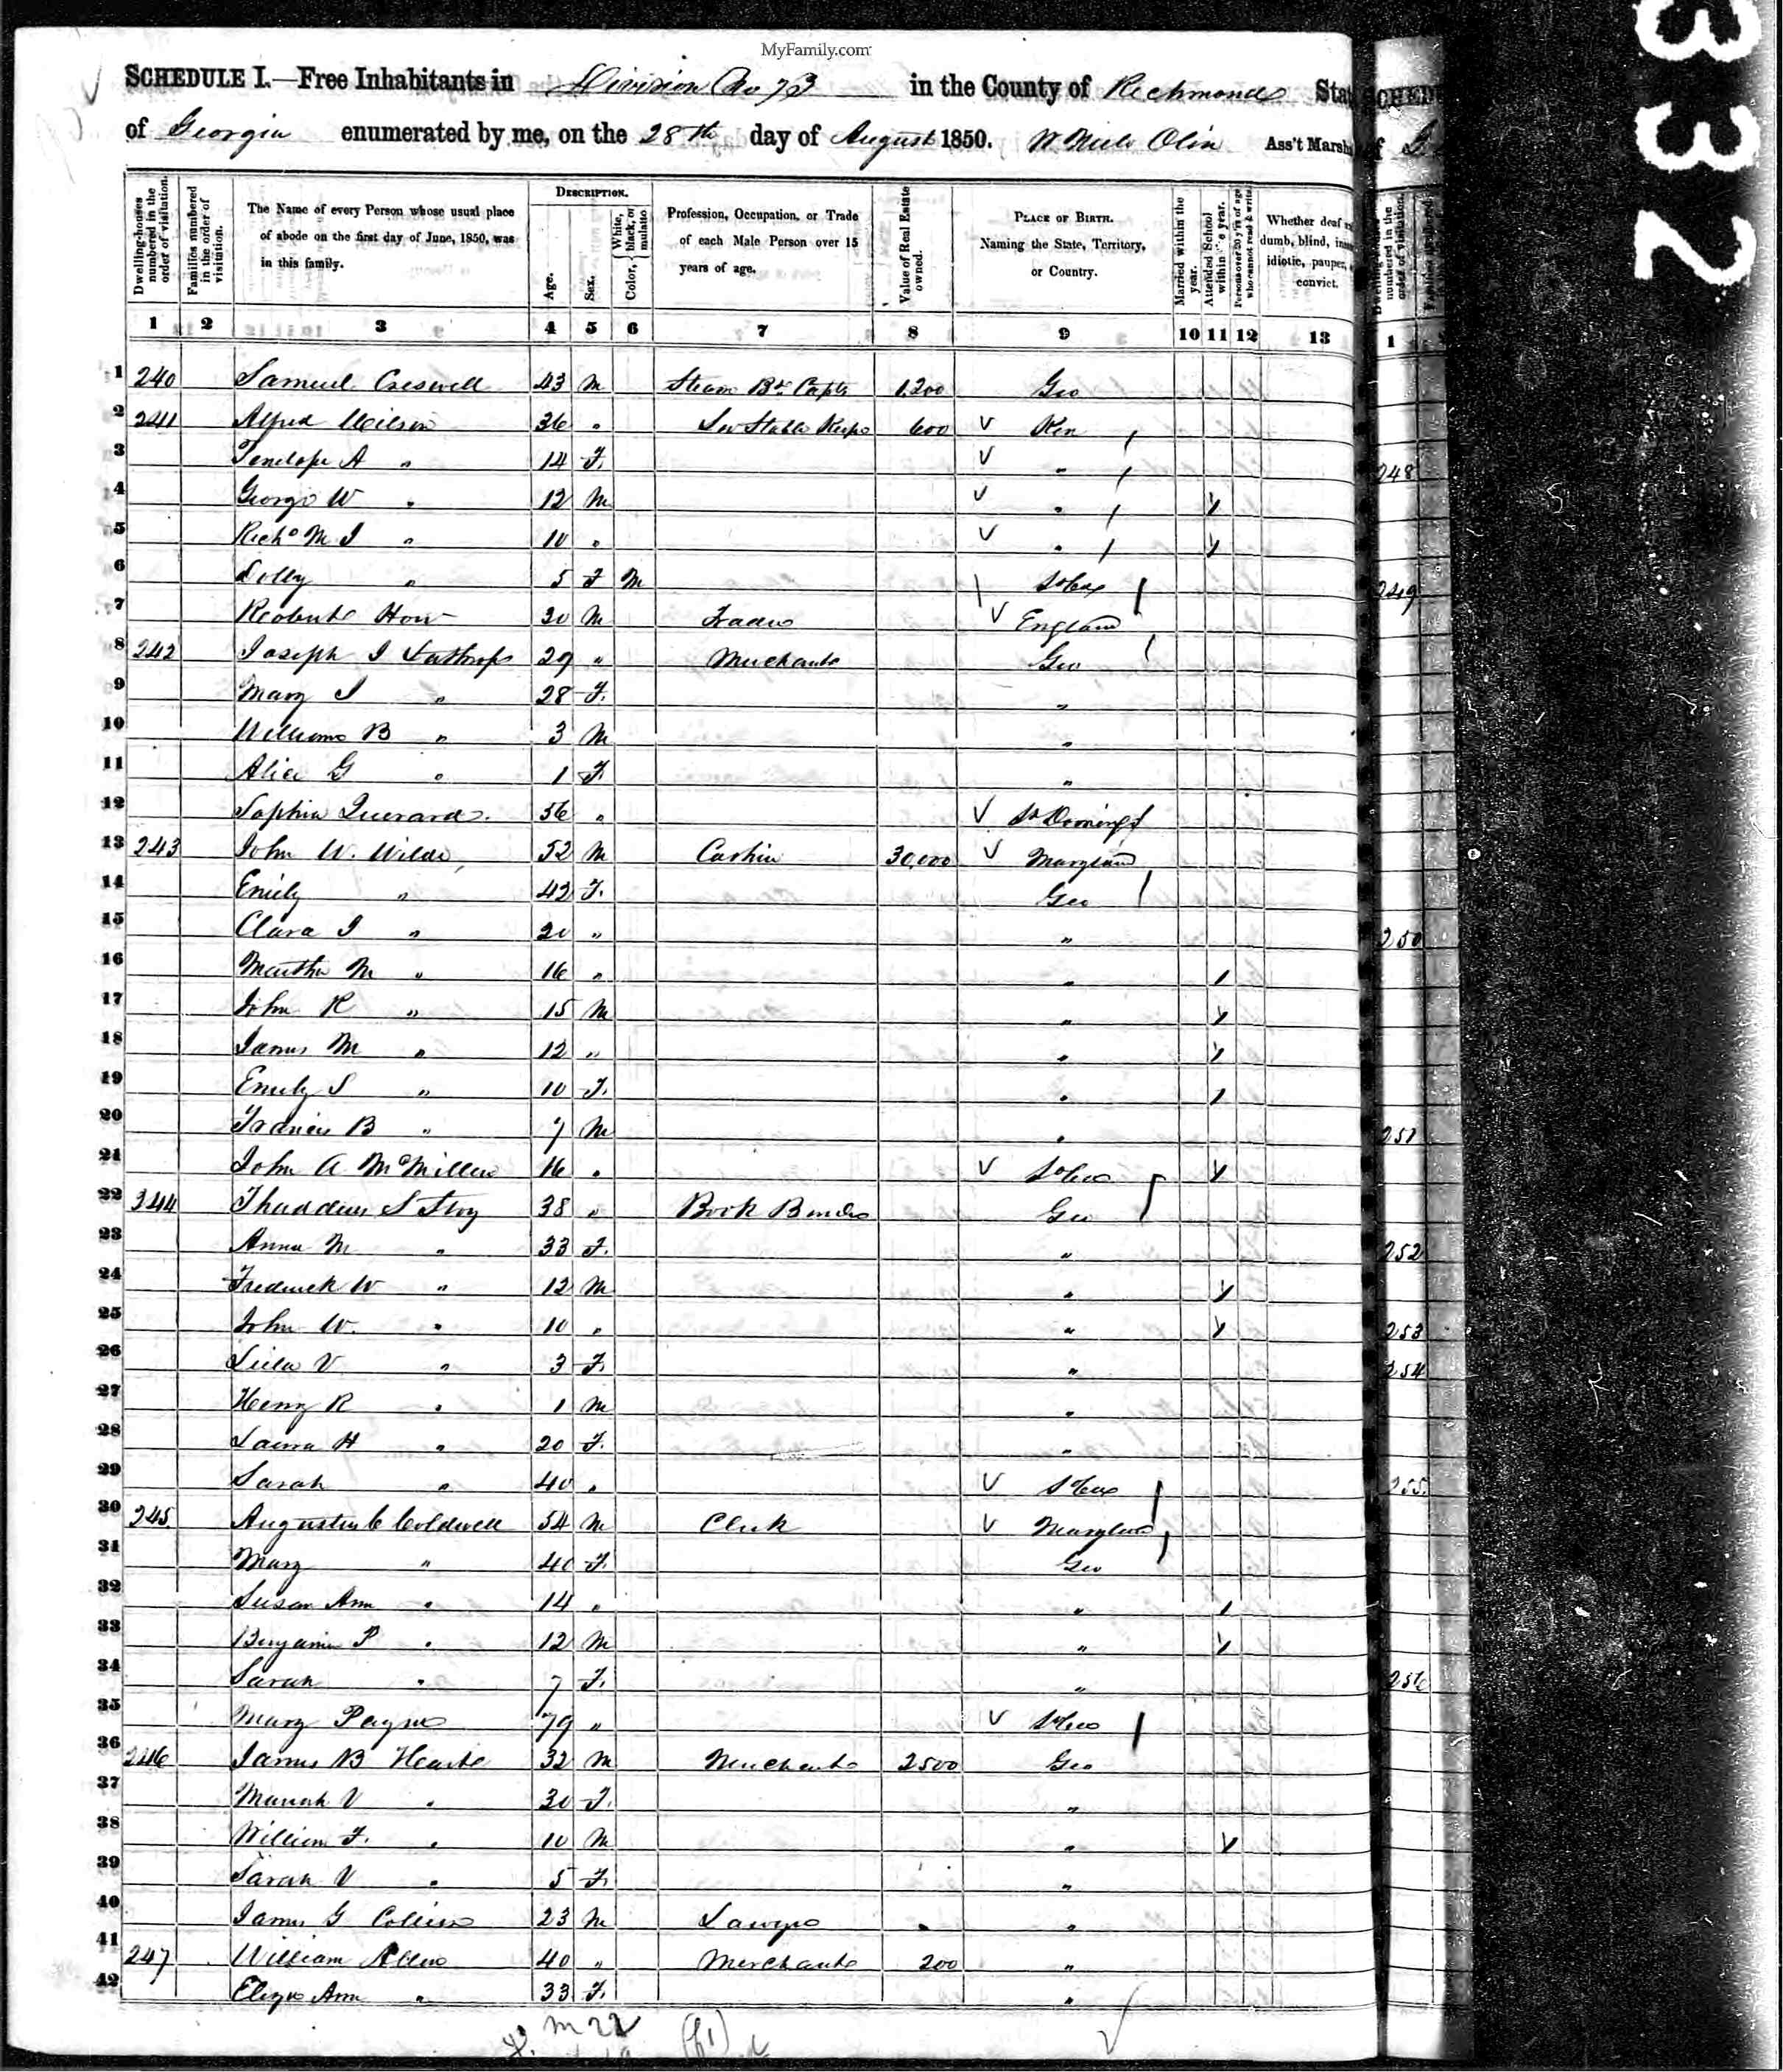 MyFamily.com
SCHEDULE I.—Free Inhabitants in Division No 73 in the County of Richmond Stat
of Georgia enumerated by me, on the 28th day of August 1850. Olin Ass't Marsh
Dwelling-houses numbered in the order of visitation.
Families numbered in the order of visitation.
The Name of every Person whose usual place of abode on the first day of June, 1850, was in this family.
DESCRIPTION.
Age.
Sex.
Color, { White, black, or mulatto
Profession, Occupation, or Trade of each Male Person over 15 years of age.
Value of Real Estate owned.
PLACE OF BIRTH. Naming the State, Territory, or Country.
Married within the year.
Attended School within the year.
Persons over 20 y'rs of age who cannot read & write.
Whether deaf dumb, blind, idiotic, pauper, convict.
1 2 3 4 5 6 7 8 9 10 11 12 13 1
1 240 Samuel Creswell 43 M Steam Bt Capt 1,200 Geo
2 241 Alfred Wilson 36 " Liv Stable Keepr 600 Ken
3 Penelope A " 14 F. "
4 George W " 12 M "
5 Richd M J " 10 " "
6 Dolly " 5 F M So Ca
7 How 20 M Trader England
8 242 Joseph J Lathrop 29 " Merchant Geo
9 Mary J " 28 F. "
10 William B " 3 M "
11 Alice G " 1 F. "
12 Sophia 56 " St Domingo
13 243 John W. Wilde 52 M Cashier 30,000 Maryland
14 Emily " 42 F. Geo
15 Clara J " 20 " "
16 Martha M " 16 " "
17 John R " 15 M "
18 James M " 12 " "
19 Emily S " 10 F. "
20 Francis B " 7 M "
21 John A McMillen 16 " So Ca
22 344 Thaddeus S Stoy 38 " Book Binder Geo
23 Anna M " 33 F. "
24 Frederick W " 12 M "
25 John W. " 10 " "
26 Leila V " 3 F. "
27 Henry R " 1 M "
28 Laura H " 20 F. "
29 Sarah " 40 " So Ca
30 245 Augustus C Coldwell 54 M Clerk Maryland
31 Mary " 40 F. Geo
32 Susan Ann " 14 " "
33 Benjamin P " 12 M "
34 Sarah " 7 F. "
35 Mary Payne 79 " So Ca
36 246 James B 32 M Merchant 2500 Geo
37 V " 30 F. "
38 William F. " 10 M "
39 Sarah V " 5 F. "
40 James G Collins 23 M Lawyer "
41 247 William Allen 40 " Merchant 200 "
42 Eliza Ann " 33 F. "
m 22
248
249
250
251
252
253
254
255
256
332